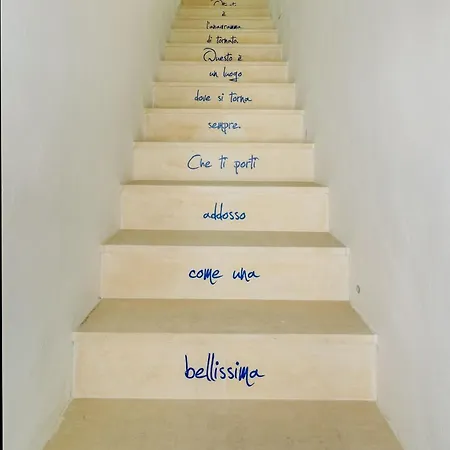 è
l'anagramma
di tornata.
Questo è
un luogo
dove si torna
sempre.
Che ti porti
addosso
come una
bellissima